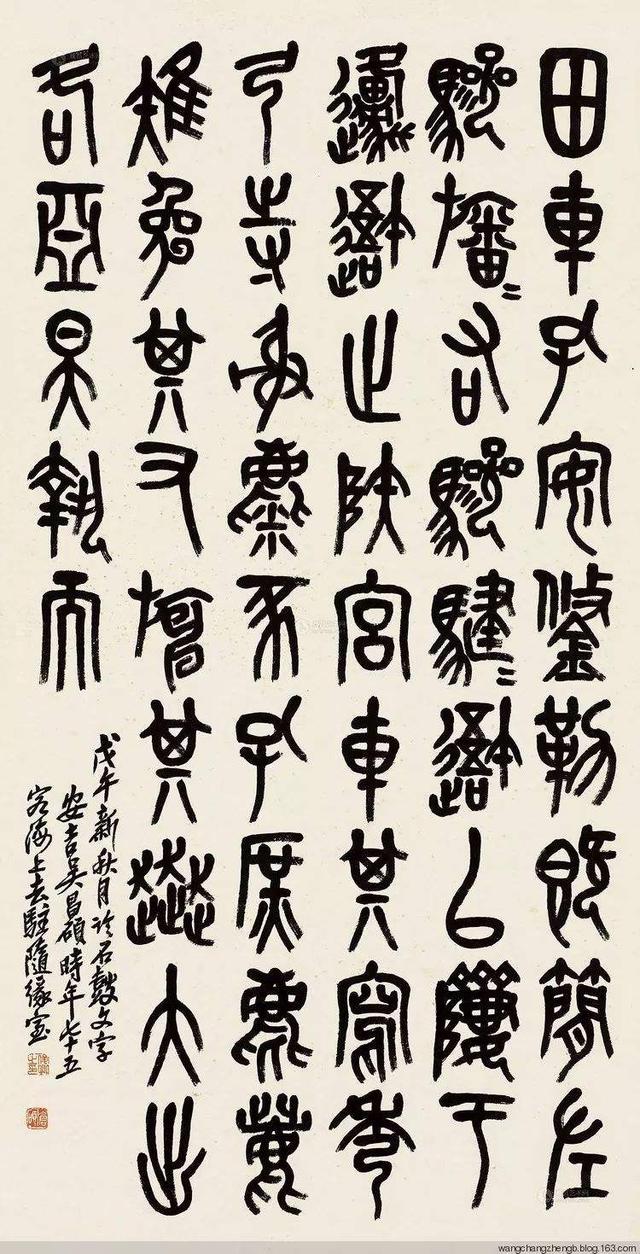 田車孔安鋚勒既簡左
驂旛=右驂騝=䢩以隮于
邍䢩止陝宮車其寫秀
弓寺射麋豕孔庶麀鹿
雉兔其又旃其奔大出
各亞昊執而
戊午新秋月臨石鼓文字
安吉吳昌碩時年七十五
客海上去駐隨緣室
wangchangzhengb.blog.163.com